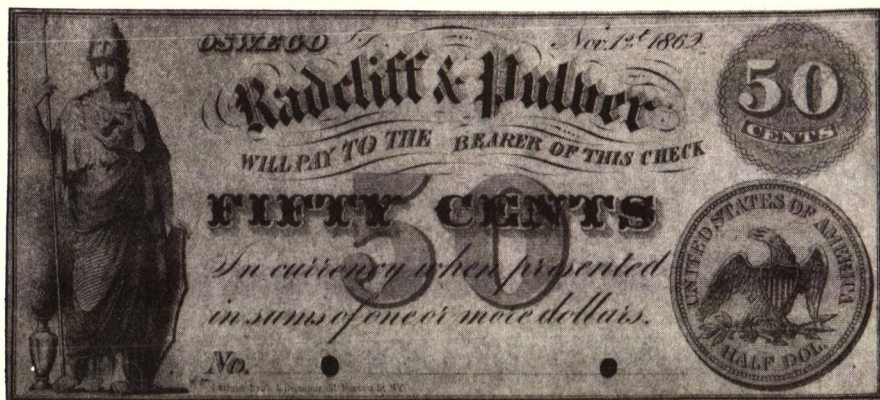 OSWEGO Nov. 1st 1862
Radcliff & Pulver
50
CENTS
WILL PAY TO THE BEARER OF THIS CHECK
50
FIFTY CENTS
In currency when presented
in sums of one or more dollars.
UNITED STATES OF AMERICA
HALF DOL
No.